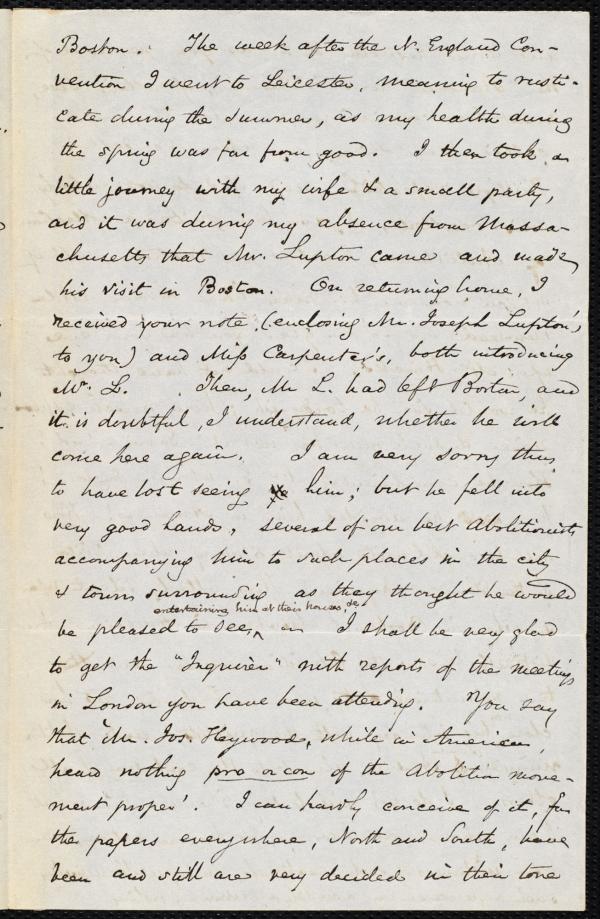 Boston. The week after the N. England Con-
vention I went to Leicester, meaning to rusti-
cate during the summer, as my health during
the spring was far from good. I then took a
little journey with my wife & a small party,
and it was during my absence from Massa-
chusetts that Mr. Lupton came and made
his visit in Boston. On returning home, I
received your note, (enclosing Mr. Joseph Lupton's
to you) and Miss Carpenter's, both introducing
Mr. L. Then, Mr L. had left Boston, and
it is doubtful, I understand, whether he will
come here again. I am very sorry thus
to have lost seeing him; but he fell into
very good hands, several of our best Abolitionists
accompanying him to such places in the city
& towns surrounding as they thought he would
entertaining him at their houses, &c
be pleased to see, I shall be very glad
to get the "Inquirer" with reports of the meetings
in London you have been attending. You say
that 'Mr. Jos. Heywood, while in America,
heard nothing pro or con of the Abolition move-
ment proper'. I can hardly conceive of it, for
the papers everywhere, North and South, have
been and still are very decided in their tone